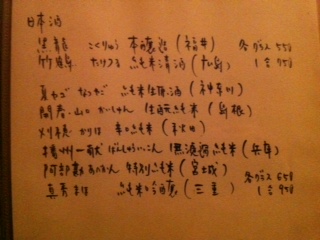 日本酒
黒龍 こくりゅう 本醸造(福井) 各グラス 550
竹鶴 たけつる 純米清酒(広島) 1合 950
夏ヤゴ なつやご 純米生原酒(神奈川)
開春・山口 かいしゅん 生酛純米(島根)
刈穂 かりほ 辛口純米(秋田)
播州一献 ばんしゅういっこん 無濾過純米(兵庫)
阿部勘 あべかん 特別純米(宮城) 各グラス 650
純米吟醸(三重) 1合 950